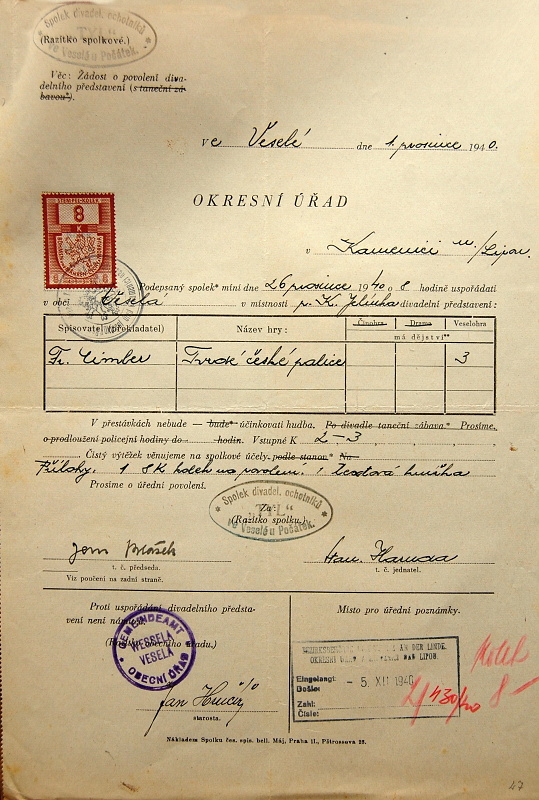 Spolek divadel. ochotníků
"TYL"
ve Veselé u Počátek.
(Razítko spolkové.)
Věc: Žádost o povolení diva-
delního představení (s taneční zá-
bavou*).
Ve Veselé dne 1. prosince 1940.
OKRESNÍ ÚŘAD
v Kamenici n/Lipou.
STEMPEL-KOLEK
8
K
8 8
Podepsaný spolek* míní dne 26 prosince 1940 o 8 hodině uspořádati
v obci Veselá v místnosti p. K. divadelní představení:
Spisovatel (překladatel) Název hry: Činohra Drama Veselohra
má dějství**
Fr. Cimler Tvrdé české palice 3
V přestávkách nebude — bude* účinkovati hudba. Po divadle taneční zábava.* Prosíme,
o prodloužení policejní hodiny do hodin. Vstupné K 2-3
Čistý výtěžek věnujeme na spolkové účely. podle stanov* Na
Přílohy: 1 8K kolek na povolení. 1 Textová knížka
Prosíme o úřední povolení.
Spolek divadel. ochotníků
"TYL"
ve Veselé u Počátek.
Za:
(Razítko spolku.)
Jan
t. č. předseda.
t. č. jednatel.
Viz poučení na zadní straně.
Proti uspořádání divadelního předsta-
vení není námitek.
(Razítko obecního úřadu.)
GEMEINDEAMT
WESSELA
VESELÁ
OBECNÍ ÚŘAD
Jan
starosta.
Místo pro úřední poznámky.
AN DER LINDE.
OKRESNÍ ÚŘAD KAMENICE NAD LIPOU.
Eingelangt:
Došlo: - 5. XII 1940
Zahl:
Číslo:
Kolek
8 —
Nákladem Spolku čes. spis. bell. Máj, Praha II., Pštrossova 28.
47